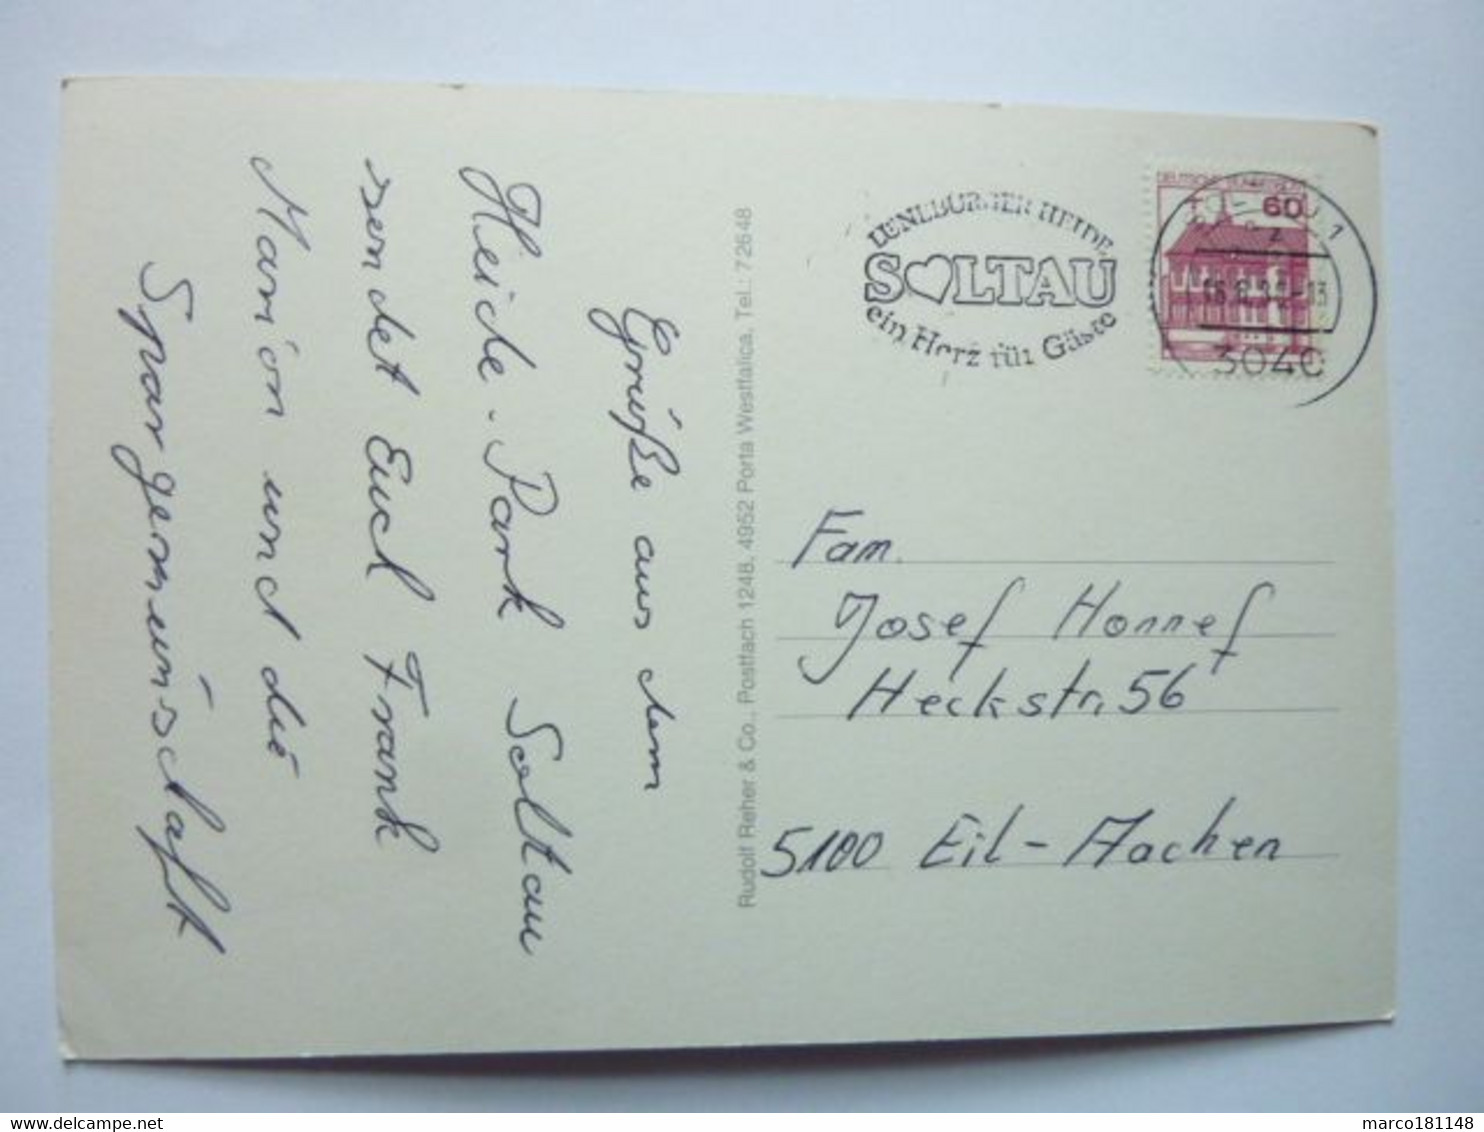 Grüße aus dem
Heide-Park Soltau
sendet Euch Frank
Marion und die
Spargemeinschaft
Rudolf Reher & Co., Postfach 1248, 4952 Porta Westfalica, Tel.: 72648
LÜNEBURGER HEIDE
SOLTAU
ein Herz für Gäste
60
3040
Fam.
Josef Honnef
Heckstr. 56
5100 Eil-Aachen
marco181148